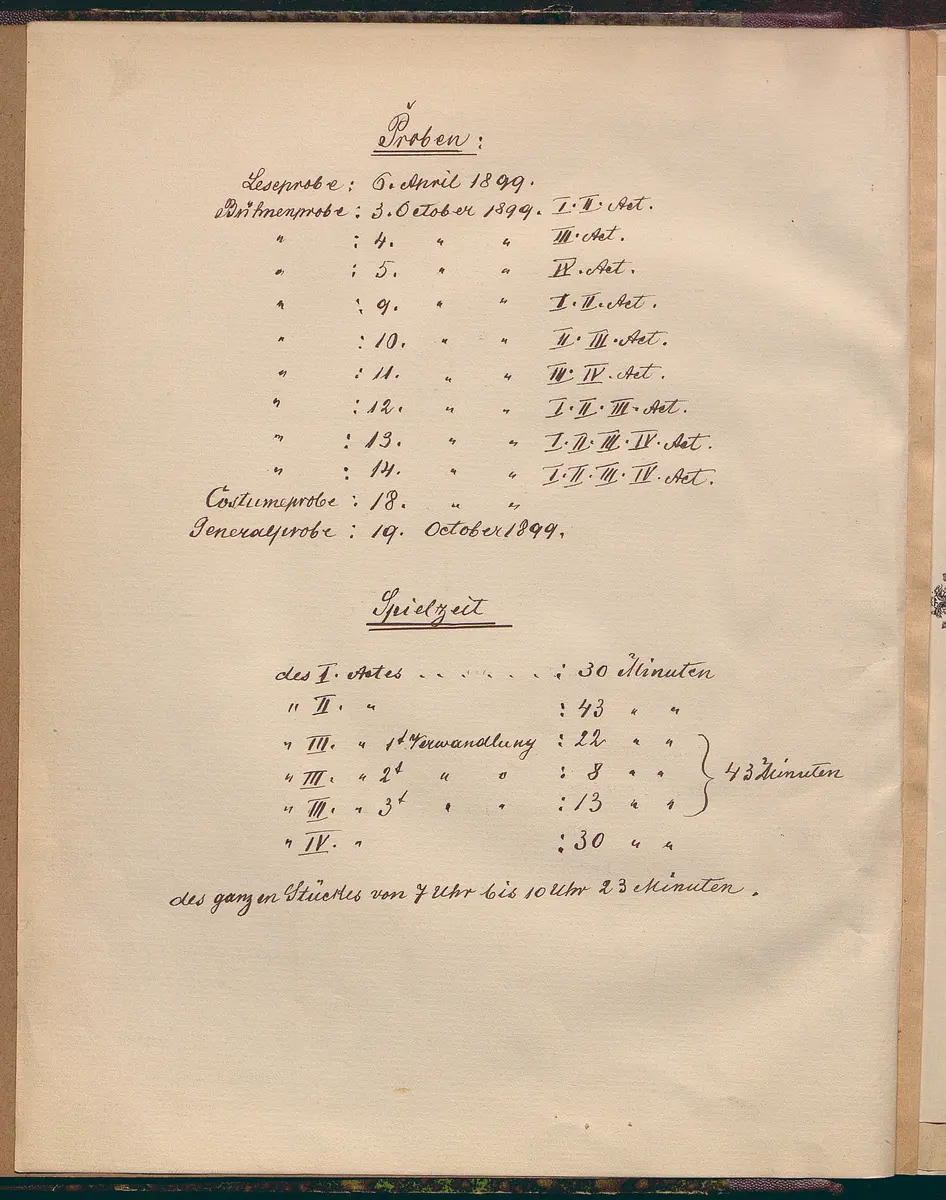 Proben:
Leseprobe: 6. April 1899.
Bühnenprobe: 3. October 1899. I. II. Act.
" : 4. " " III. Act.
" : 5. " " IV. Act.
" : 9. " " I. II. Act.
" : 10. " " II. III. Act.
" : 11. " " III. IV. Act.
" : 12. " " I. II. III. Act.
" : 13. " " I. II. III. IV. Act.
" : 14. " " I. II. III. IV. Act.
Costumeprobe: 18. " "
Generalprobe: 19. October 1899.
Spielzeit
des I. Actes . . . . . . . : 30 Minuten
" II. " : 43 " "
" III. " 1t Verwandlung : 22 " "
" III. " 2t " " : 8 " " } 43 Minuten
" III. " 3t " " : 13 " "
" IV. " : 30 " "
des ganzen Stückes von 7 Uhr bis 10 Uhr 23 Minuten.